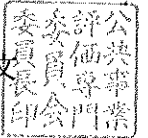 公共事業
評価専門
委員会
委員長印